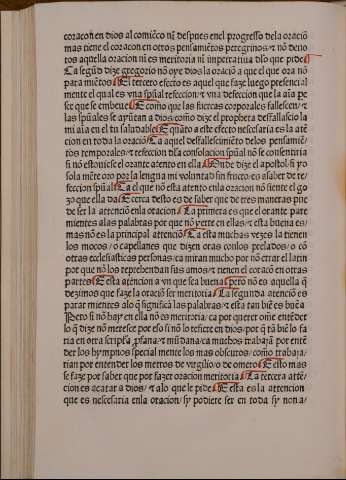 coraçon en dios al comiēco nī despues enel progresso dela oraciō
mas tiene el coracon en otros pensamiētos peregrinos ⁊ nō deuo
tos aquella oracion nī es meritoria nī impetratiua dlo que pide
Ca segūd dize gregorio nō oye dios la oraciō a el que ora nō
para miētes El tercero efecto es aquel que faze luego presencial
mente el qual es vna spūal refeccion ⁊ vna deleccion que la aīa pe
sce que se embeue E como que las fuercas corporales fallescen ⁊
las spūales se ayuētan a dios como dize el propheta desfallascio la
mi aīa en el tu saludable E quāto a este efecto necessaria es la atē
cion en toda la oraciō Ca aquel desfallescimiēto delos pensamiē
tos temporales ⁊ refeccion dela consolacion spūal nō se consentiria
si nō estouiesse el orante atento en ella Onde dize el apostol si yo
sola mēte oro por la lengua mi voluntad sin fructo es a saber de re
feccion spūal Ca el que nō esta atento enla oracion nō siente el go
zo que ella da E cerca desto es de saber que de tres maneras pue
de ser la atenciō enla oracion La primera es que el orante pare
mientes alas palabras por que nō yerre en ellas ⁊ esta buena es
mas nō es la principal atenciō Ca ella muchas vezes la tienen
los mocos o capellanes que dizen oras conlos prelados o cō
otras eclesiasticas personas ca miran mucho por nō errar el latin
por que nō los reprehendan sus amos ⁊ tienen el coracō en otras
partes E esta atencion a vn que sea buena pero nō es aquella q̄
dezimos que faze la oraciō ser meritoria La segunda atenciō es
parar mientes alo q̄ significā las palabras ⁊ esta tan biē es buēa
Pero si nō hay en ella nō es meritoria ca por querer ome entēder
lo q̄ dize nō meresce por eso si nō lo refiere en dios por q̄ tā biē lo fa
ria en otra scriptā ꝓfana ⁊ mūdana ca muchos trabajā por entē
der los hymnos special mente los mas obscuros como trabaja
rian por entender los metros de virgilio o de omero E esto mas
se faze por saber que por fazer oracion meritoria La tercera atē
cion es acatar a dios ⁊ alo que le pide E esta es la atencion
que es nescesaria enla oracion sy podiere ser en toda sy non a